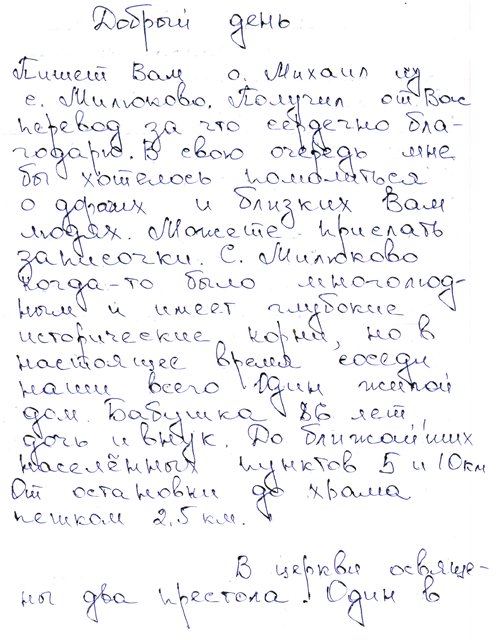 Добрый день
Пишет Вам о. Михаил из
с. Милюково. Получил от Вас
перевод за что сердечно бла-
годарю. В свою очередь мне
бы хотелось помолиться
о дорогих и близких Вам
людях. Можете прислать
записочки. С. Милюково
когда-то было многолюд-
ным и имеет глубокие
исторические корни, но в
настоящее время соседи
наши всего один жилой
дом. Бабушка 86 лет,
дочь и внук. До ближайших
населённых пунктов 5 и 10 км
От остановки до храма
пешком 2,5 км.
В церкви освяще-
ны два престола. Один в